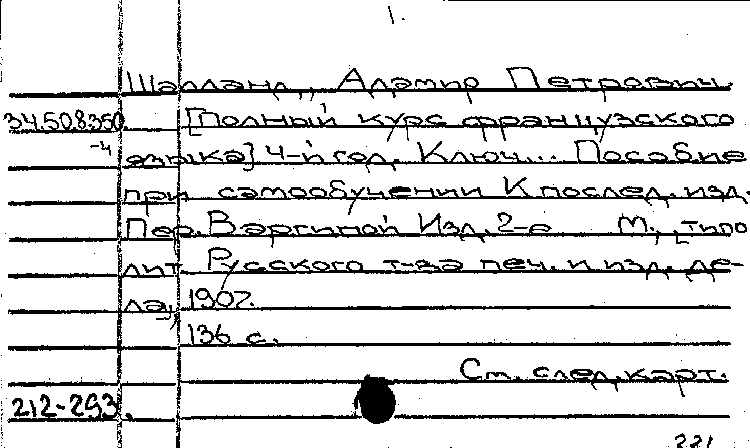 1.
Шалланд, Адамир Петрович.
34.508350 [Полный курс французского
-4 языка] 4-й год. Ключ... Пособие
при самообучении К послед. изд.
Пер. Вэргиной Изд. 2-е М., [типо
лит Русского т-ва печ. и изд. де-
ла], 1907.
136 с.
См. след. карт.
212-293.
221